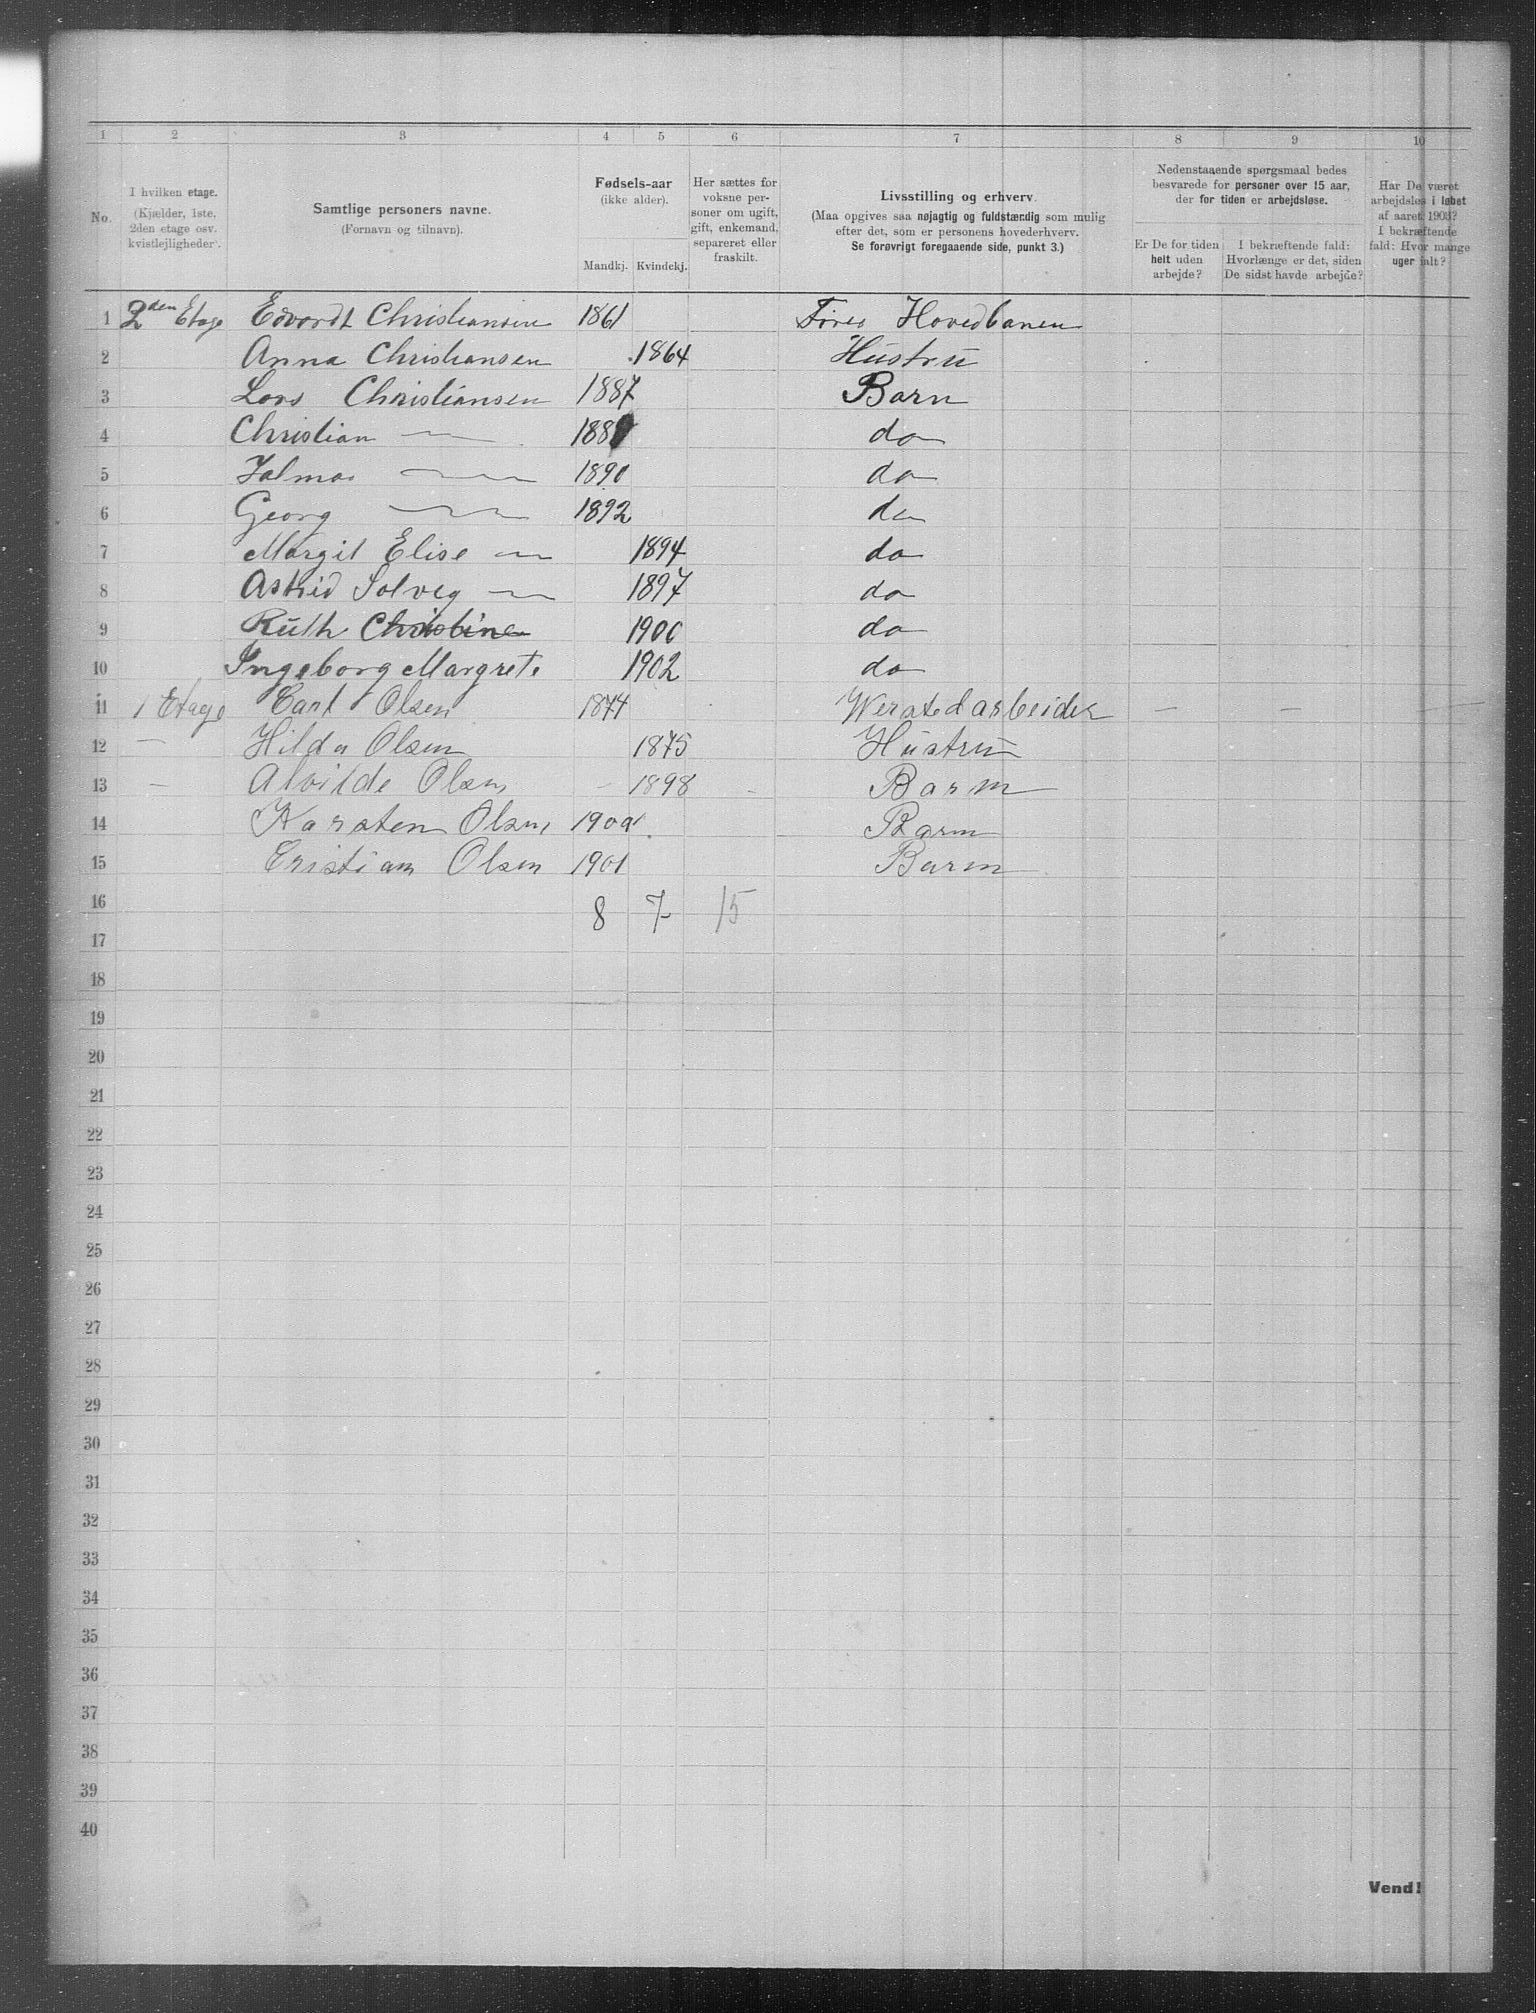 1 2 3 4 5 6 7 8 9 10
No.
I hvilken etage.
(Kjælder, 1ste,
2den etage osv.
kvistlejligheder).
Samtlige personers navne.
(Fornavn og tilnavn).
Fødsels-aar
(ikke alder).
Mandkj. Kvindekj.
Her sættes for
voksne per-
soner om ugift,
gift, enkemand,
separeret eller
fraskilt.
Livsstilling og erhverv.
(Maa opgives saa nøjagtig og fuldstændig som mulig
efter det, som er personens hovederhverv.
Se forøvrigt foregaaende side, punkt 3.)
Nedenstaaende spørgsmaal bedes
besvarede for personer over 15 aar,
der for tiden er arbejdsløse.
Er De for tiden
helt uden
arbejde?
I bekræftende fald:
Hvorlænge er det, siden
De sidst havde arbejde?
Har De været
arbejdsløs i løbet
af aaret 1903?
I bekræftende
fald: Hvor mange
uger ialt?
1 2den Etage Edvardt Christiansen 1861 Hovedbanen
2 Anna Christiansen 1864 Hustru
3 Lars Christiansen 1887 Barn
4 Christian — 188 do
5 Jalmar — 1890 do
6 Georg — 1892 do
7 Margit Elise — 1894 do
8 Astrid Solveg — 1897 do
9 Ruth Christine 1900 do
10 Ingeborg Margrete 1902 do
11 1 Etage Carl Olsen 1874 Werstedarbeider — — —
12 — Hilda Olsen 1875 Hustru
13 — Alvilde Olsen - 1898 - Barn
14 Karsten Olsen 1900 Barn
15 Cristian Olsen 1901 Barn
16 8 7 15
17
18
19
20
21
22
23
24
25
26
27
28
29
30
31
32
33
34
35
36
37
38
39
40
Vend!